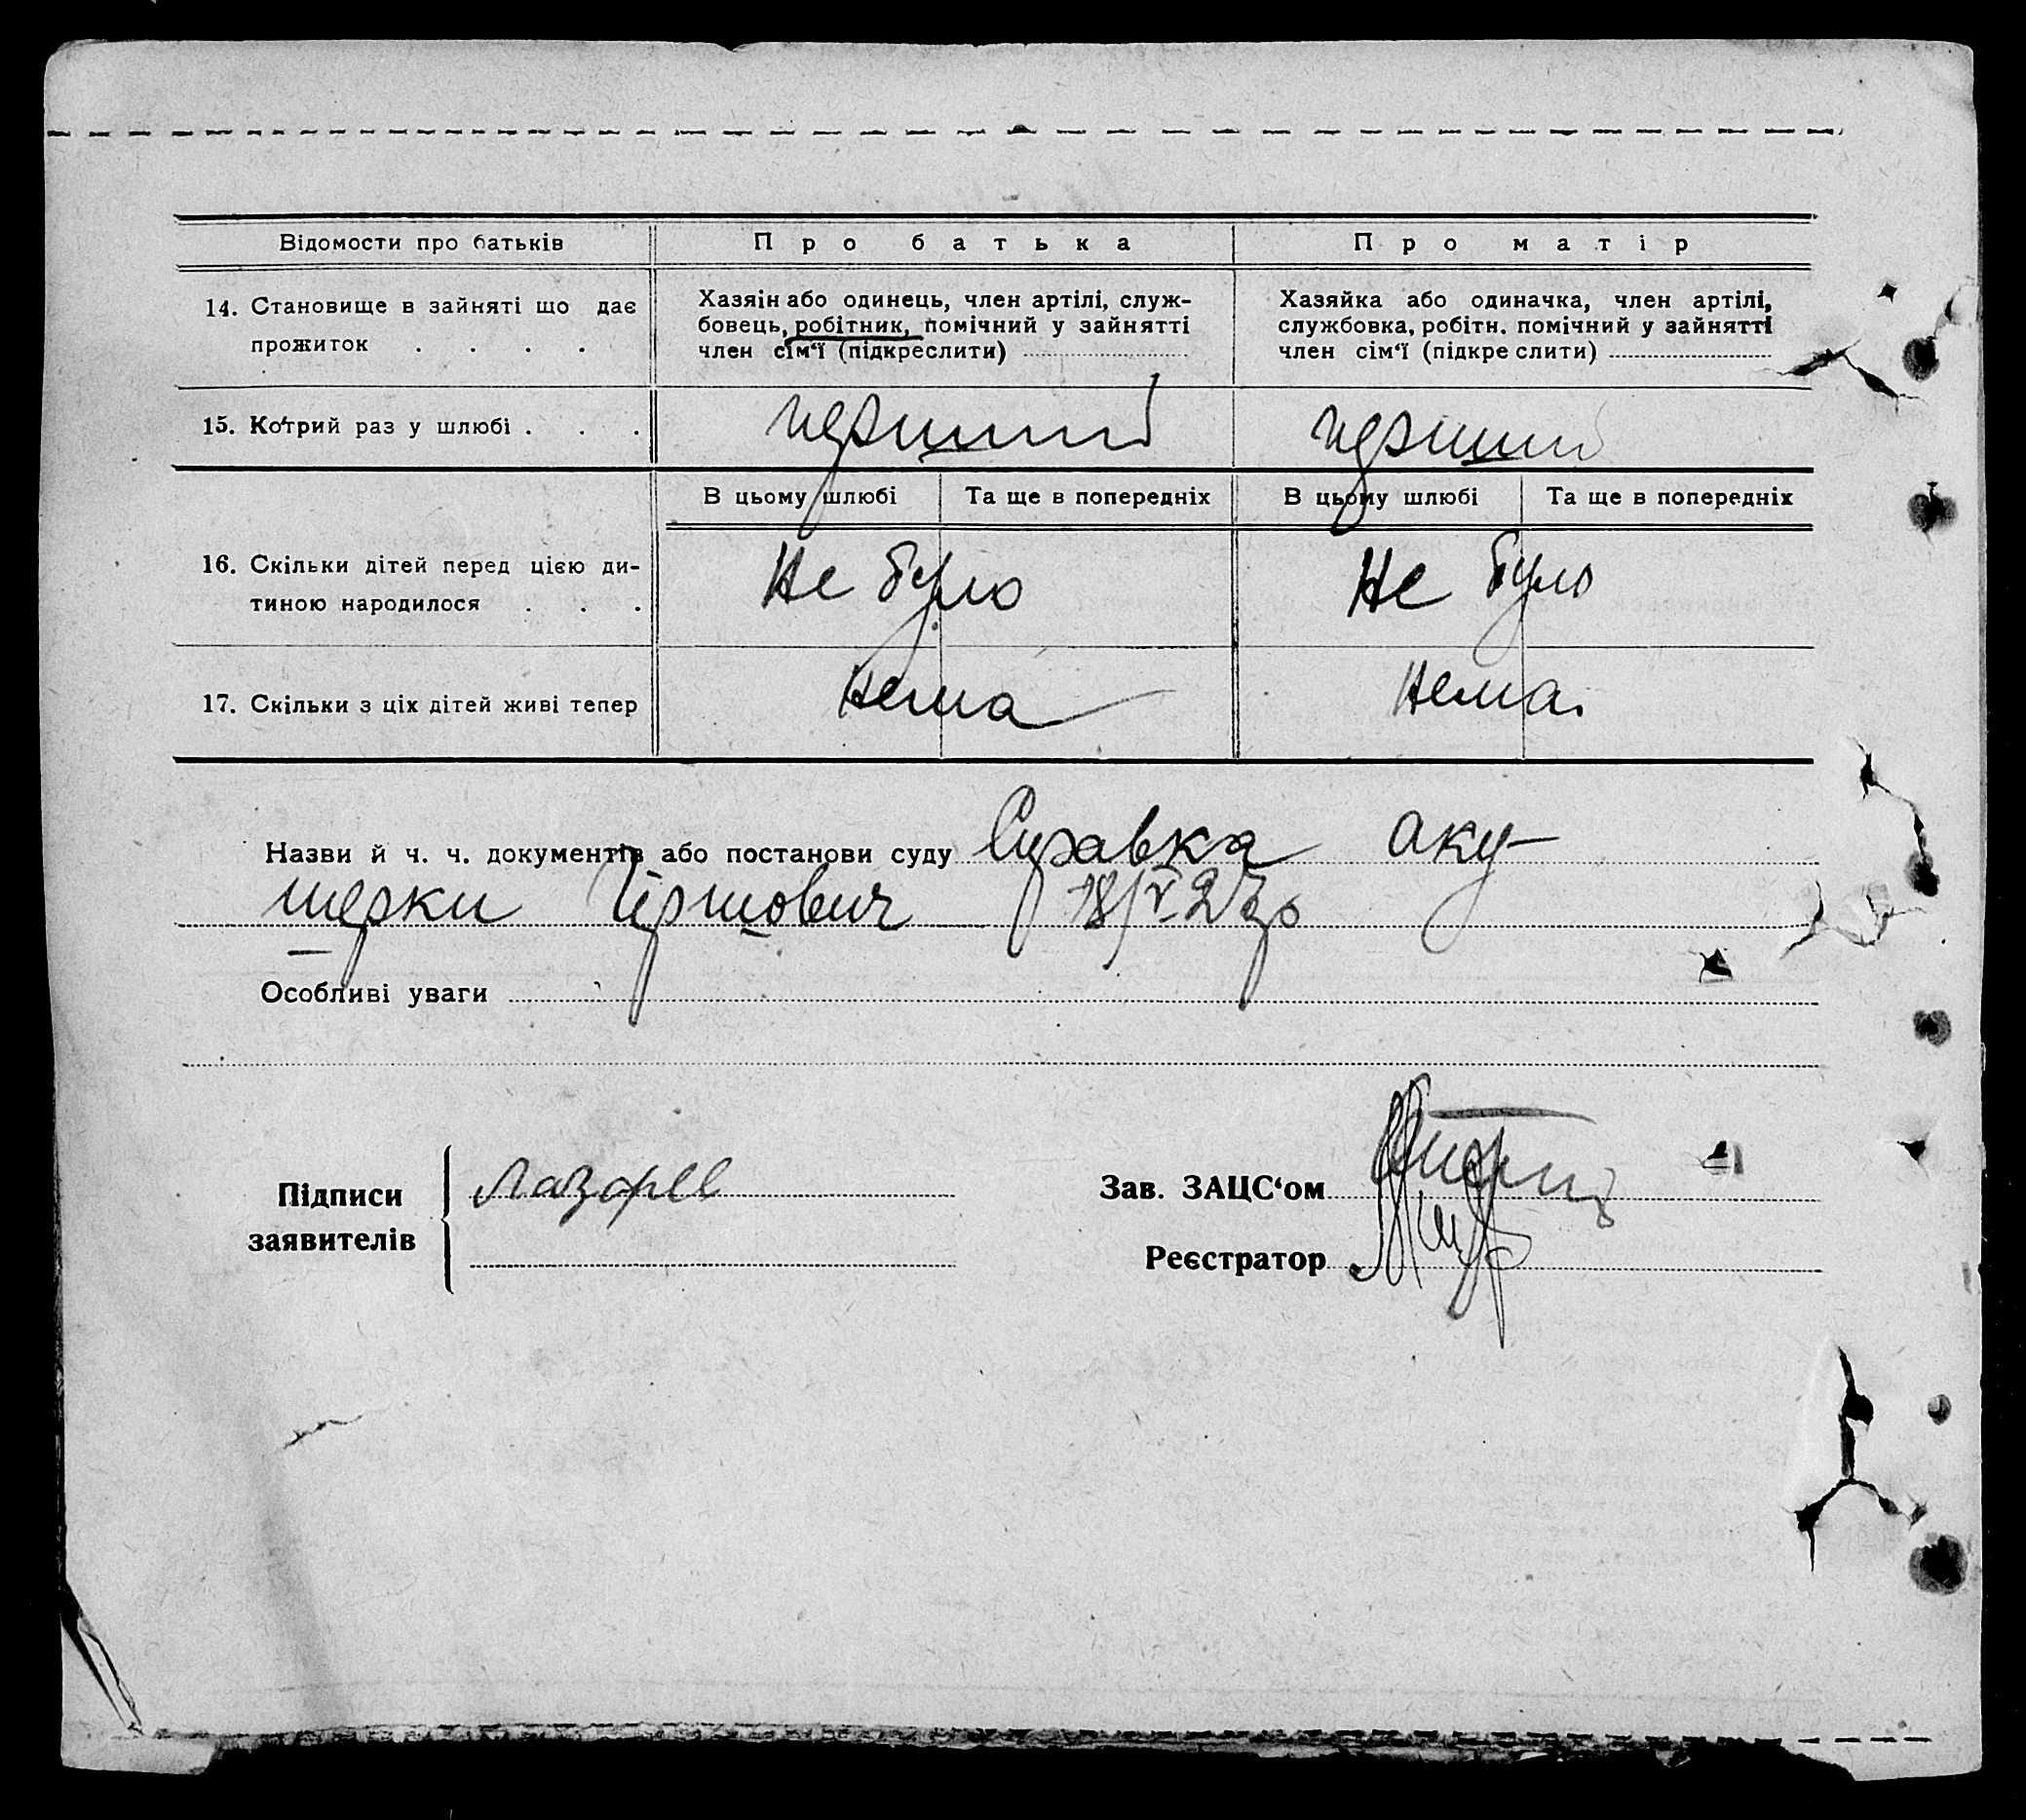 Відомости про батьків Про батька Про матір
14. Становище в зайняті що дає Хазяін або одинець, член артілі, служ- Хазяйка або одиначка, член артілі,
прожиток . . . . бовець, робітник, помічний у зайнятті службовка, робітн. помічний у зайнятті
член сім‘ї (підкреслити) член сім‘ї (підкре слити)
15. Котрий раз у шлюбі . . . перший перший
В цьому шлюбі Та ще в попередніх В цьому шлюбі Та ще в попередніх
16. Скільки дітей перед цією ди- Не було Не було
тиною народилося . . .
17. Скільки з ціх дітей живі тепер Нема Нема.
Назви й ч. ч. документів або постанови суду Справка аку-
шерки Гіршович 18/V
Особливі уваги
Підписи Лазарев Зав. ЗАЦС‘ом
заявителів Реєстратор